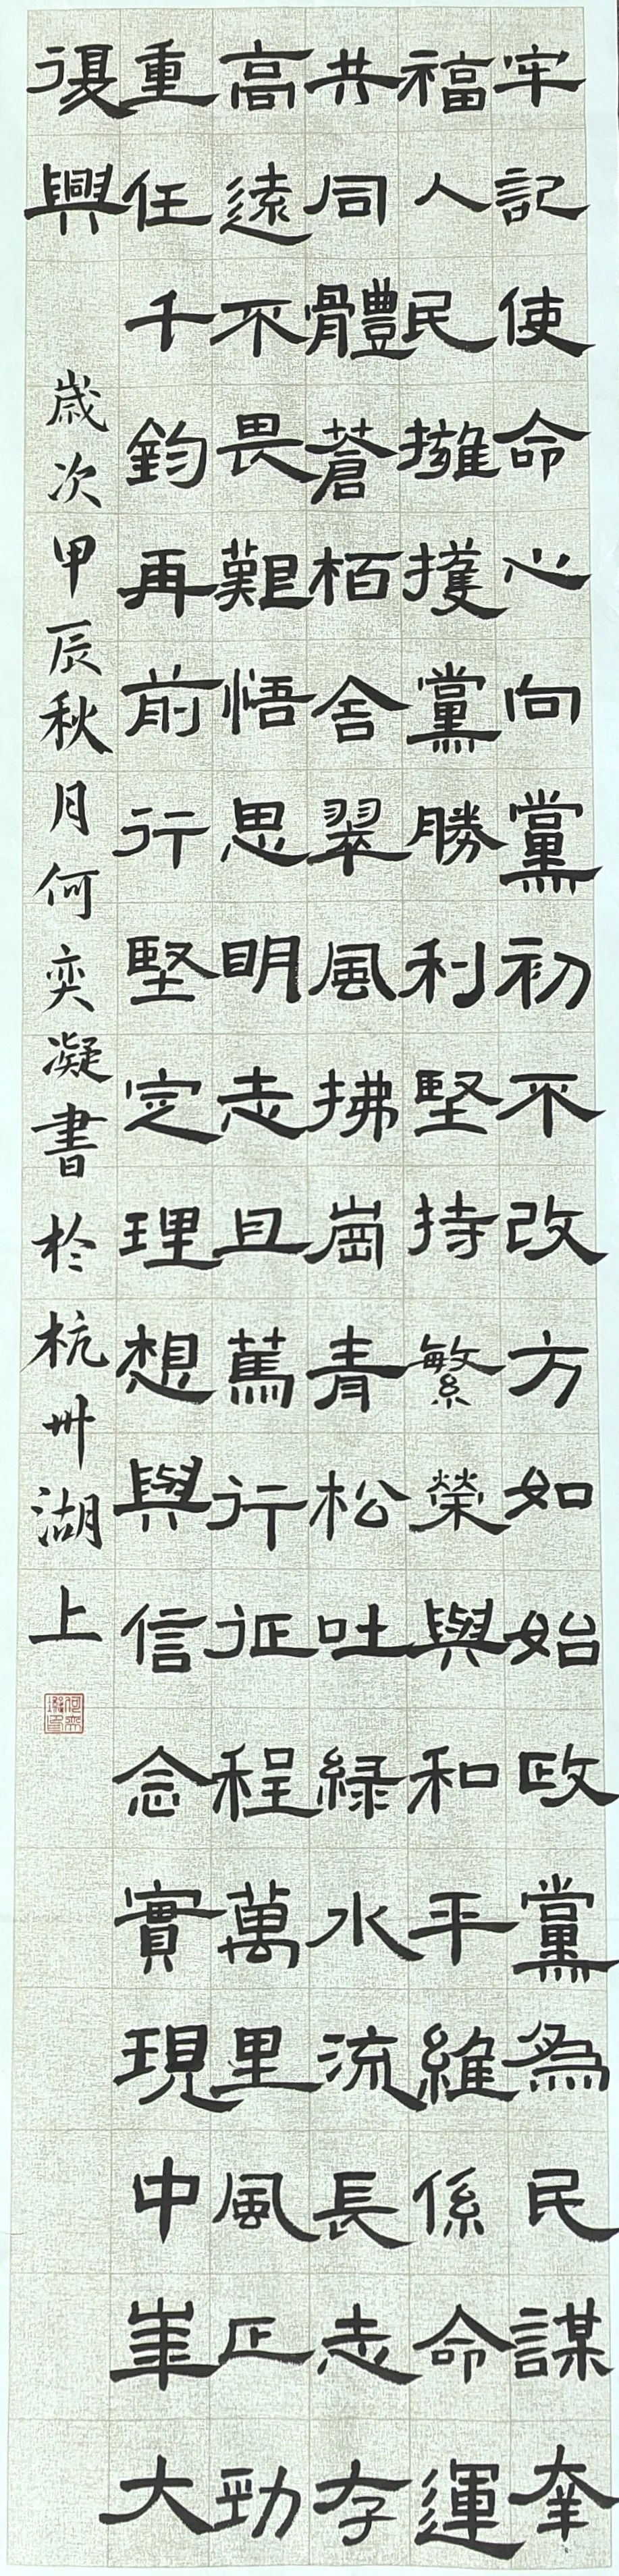 牢記使命心向黨初不改方如始政黨為民謀幸
福人民擁護黨勝利堅持繁榮與和平維係命運
共同體蒼栢含翠風拂崗青松吐緑水流長志存
高遠不畏難悟思明志且篤行征程萬里風正勁
重任千鈞再前行堅定理想與信念實現中華大
復興
歲次甲辰秋月何奕凝書於杭州湖上